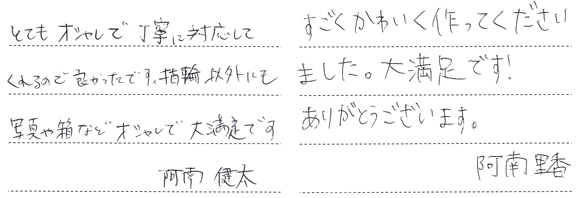 とてもオシャレで丁寧に対応して
くれるので良かったです。指輪以外にも
写真や箱などオシャレで大満足です
阿南 健太
すごくかわいく作ってください
ました。大満足です!
ありがとうございます。
阿南 里香